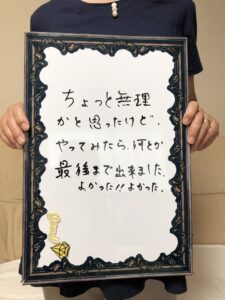 ちょっと無理
かと思ったけど、
やってみたら、何とか
最後まで出来ました。
よかった!!よかった。